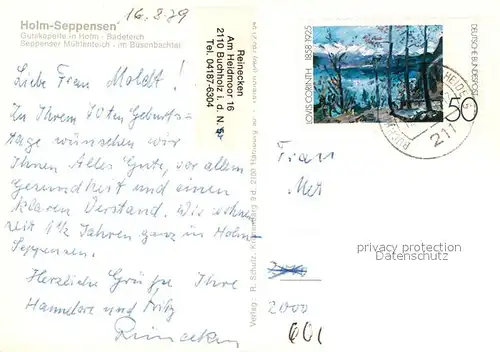 Holm-Seppensen
Gutskapelle in Holm - Badeteich
Seppenser Mühlenteich - im Büsenbachtal
16.8.79
Reinecken
Am Heidmoor 16
2110 Buchholz i. d. N.
Tel. 04187-6304
Liebe Frau Moldt!
Zu Ihrem 70ten Geburts-
tage wünschen wir
Ihnen Alles Gute, vor allem
Gesundheit und einen
klaren Verstand. Wir wohnen
seit 1½ Jahren ganz in Holm-
Seppensen.
Herzliche Grüße Ihre
Hannelore und Fritz
Reinecken
Verlag: R. Schulz,
LOVIS CORINTH 1858-1925
DEUTSCHE BUNDESPOST
50
211
Frau
2000
601
privacy protection
Datenschutz